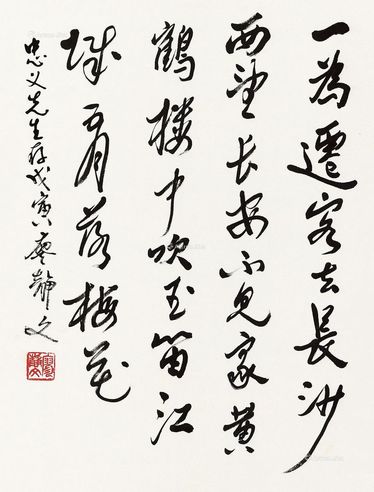 一為遷客去長沙
西望长安不见家黄
鶴楼中吹玉笛江
城五月落梅花
忠义先生存戊寅廖静文